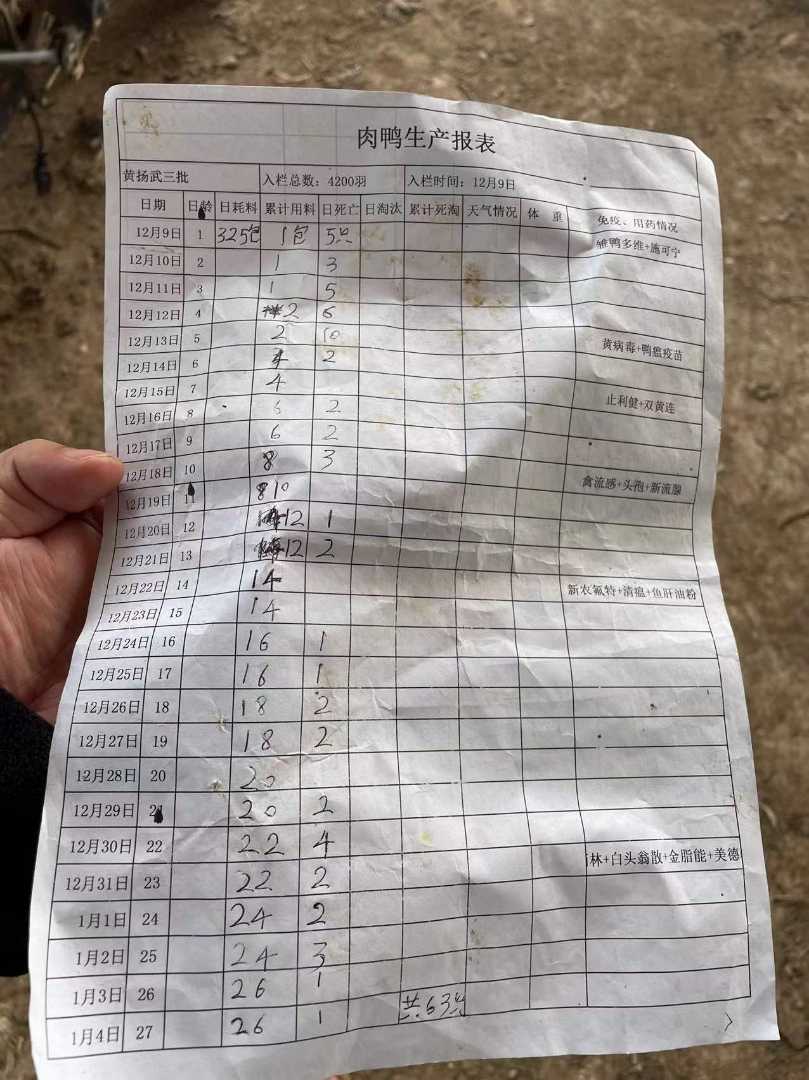 肉鸭生产报表
黄扬武三批 入栏总数：4200羽 入栏时间：12月9日
日期 日龄 日耗料 累计用料 日死亡 日淘汰 累计死淘 天气情况 体 重 免疫、用药情况
12月9日 1 325包 1包 5只 雏鸭多维+施可宁
12月10日 2 1 3
12月11日 3 1 5
12月12日 4 2 6
12月13日 5 2 10 黄病毒+鸭瘟疫苗
12月14日 6 2
12月15日 7 4 止利健+双黄连
12月16日 8 6 2
12月17日 9 6 2
12月18日 10 8 3 禽流感+头孢+新流腺
12月19日 10
12月20日 12 12 1
12月21日 13 12 2
12月22日 14 14 新农氟特+清瘟+鱼肝油粉
12月23日 15 14
12月24日 16 16 1
12月25日 17 16 1
12月26日 18 18 2
12月27日 19 18 2
12月28日 20 20
12月29日 21 20 2
12月30日 22 22 4 林+白头翁散+金脂能+美德
12月31日 23 22 2
1月1日 24 24 2
1月2日 25 24 3
1月3日 26 26 1 共63只
1月4日 27 26 1